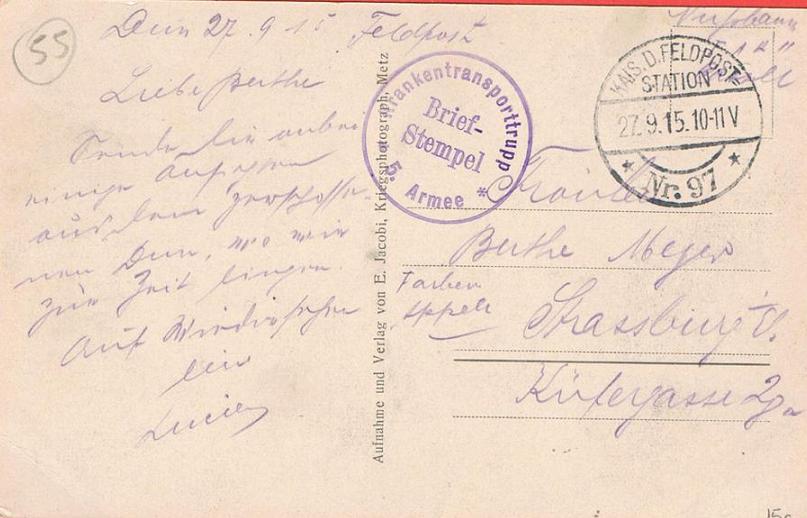 55
Dun 27. 9. 15 Feldpost
Liebe Berthe
Sende dir anbei
einige Ansichten
aus dem zerschosse-
nen Dun, wo wir
zur Zeit liegen.
Auf Wiedersehn
dein
Lucien
Aufnahme und Verlag von E. Jacobi, Kriegsphotograph, Metz
Krankentransporttrupp
Brief-
Stempel
5. Armee *
KAIS. D. FELDPOST-
STATION
27.9.15.10-11V
* Nr. 97 *
Fräulein
Berthe Meyer
Strassburg
Küfergasse 29
15c